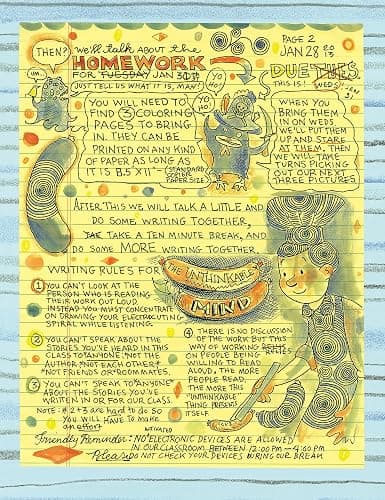 THEN?
we'll talk ABOUT the
HOMEWORK
FOR TUESDAY JAN 31
PAGE 2
JAN 28 2013
UM.
JUST TELL US WHAT IT IS, MAN!
YO HO!
YO HO!
DUE TUES.
THIS IS!
WEDS!!
YOU WILL NEED TO
FIND 3 COLORING
PAGES TO BRING
IN THEY CAN BE
PRINTED ON ANY KIND
OF PAPER AS LONG AS
IT IS 8.5 X 11"
STANDARD
COPIER
PAPER SIZE
WHEN YOU
BRING THEM
IN ON WEDS
WE'LL PUT THEM
UP AND STARE
AT THEM, THEN
WE WILL TAKE
TURNS PICKING
OUT OUR NEXT
THREE PICTURES
AFTER THIS WE WILL TALK A LITTLE AND
DO SOME WRITING TOGETHER,
TAKE A TEN MINUTE BREAK, AND
DO SOME MORE WRITING TOGETHER
WRITING RULES FOR
THE UNTHINKABLE
MIND
1 YOU CAN'T LOOK AT THE
PERSON WHO IS READING
THEIR WORK OUT LOUD
INSTEAD YOU MUST CONCENTRATE
ON DRAWING YOUR ELECTROCUTING
SPIRAL WHILE LISTENING
2 YOU CAN'T SPEAK ABOUT THE
STORIES YOU'VE HEARD IN THIS
CLASS TO ANYONE, NOT THE
AUTHOR, NOT EACH OTHER,
NOT FRIENDS OR ROOM MATES,
3 YOU CAN'T SPEAK TO ANYONE
ABOUT THE STORIES YOU'VE
WRITTEN IN OR FOR OUR CLASS.
NOTE: #2+3 are hard to do so
YOU WILL HAVE TO make
an effort
4 THERE IS NO DISCUSSION
OF THE WORK BUT THIS
WAY OF WORKING RELIES
ON PEOPLE BEING
WILLING TO READ
ALOUD, THE MORE
PEOPLE READ,
THE MORE THIS
"UNTHINKABLE"
THING PRESENTS
ITSELF
Friendly Reminder: NO ELECTRONIC DEVICES ARE ALLOWED
ACTIVATED
IN OUR CLASSROOM BETWEEN 12:00 PM - 4:00 PM
Please DO NOT CHECK YOUR DEVICES DURING OUR BREAK